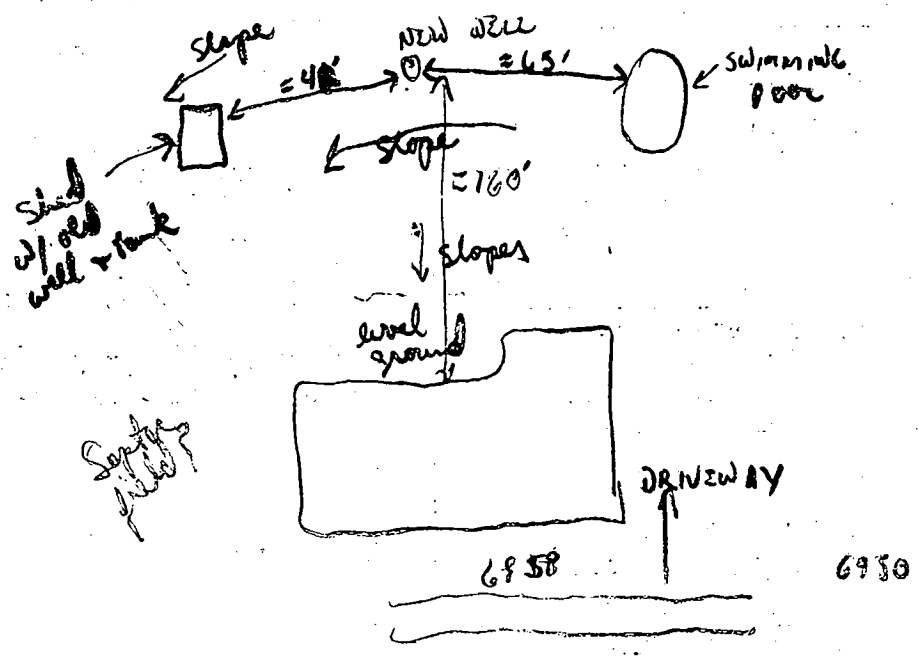 slope
NEW WELL
≈65'
SWIMMING
POOL
slope
≈160'
Shed
w/ old
well & tank
slopes
level
ground
Septic
field?
DRIVEWAY
6958
6950